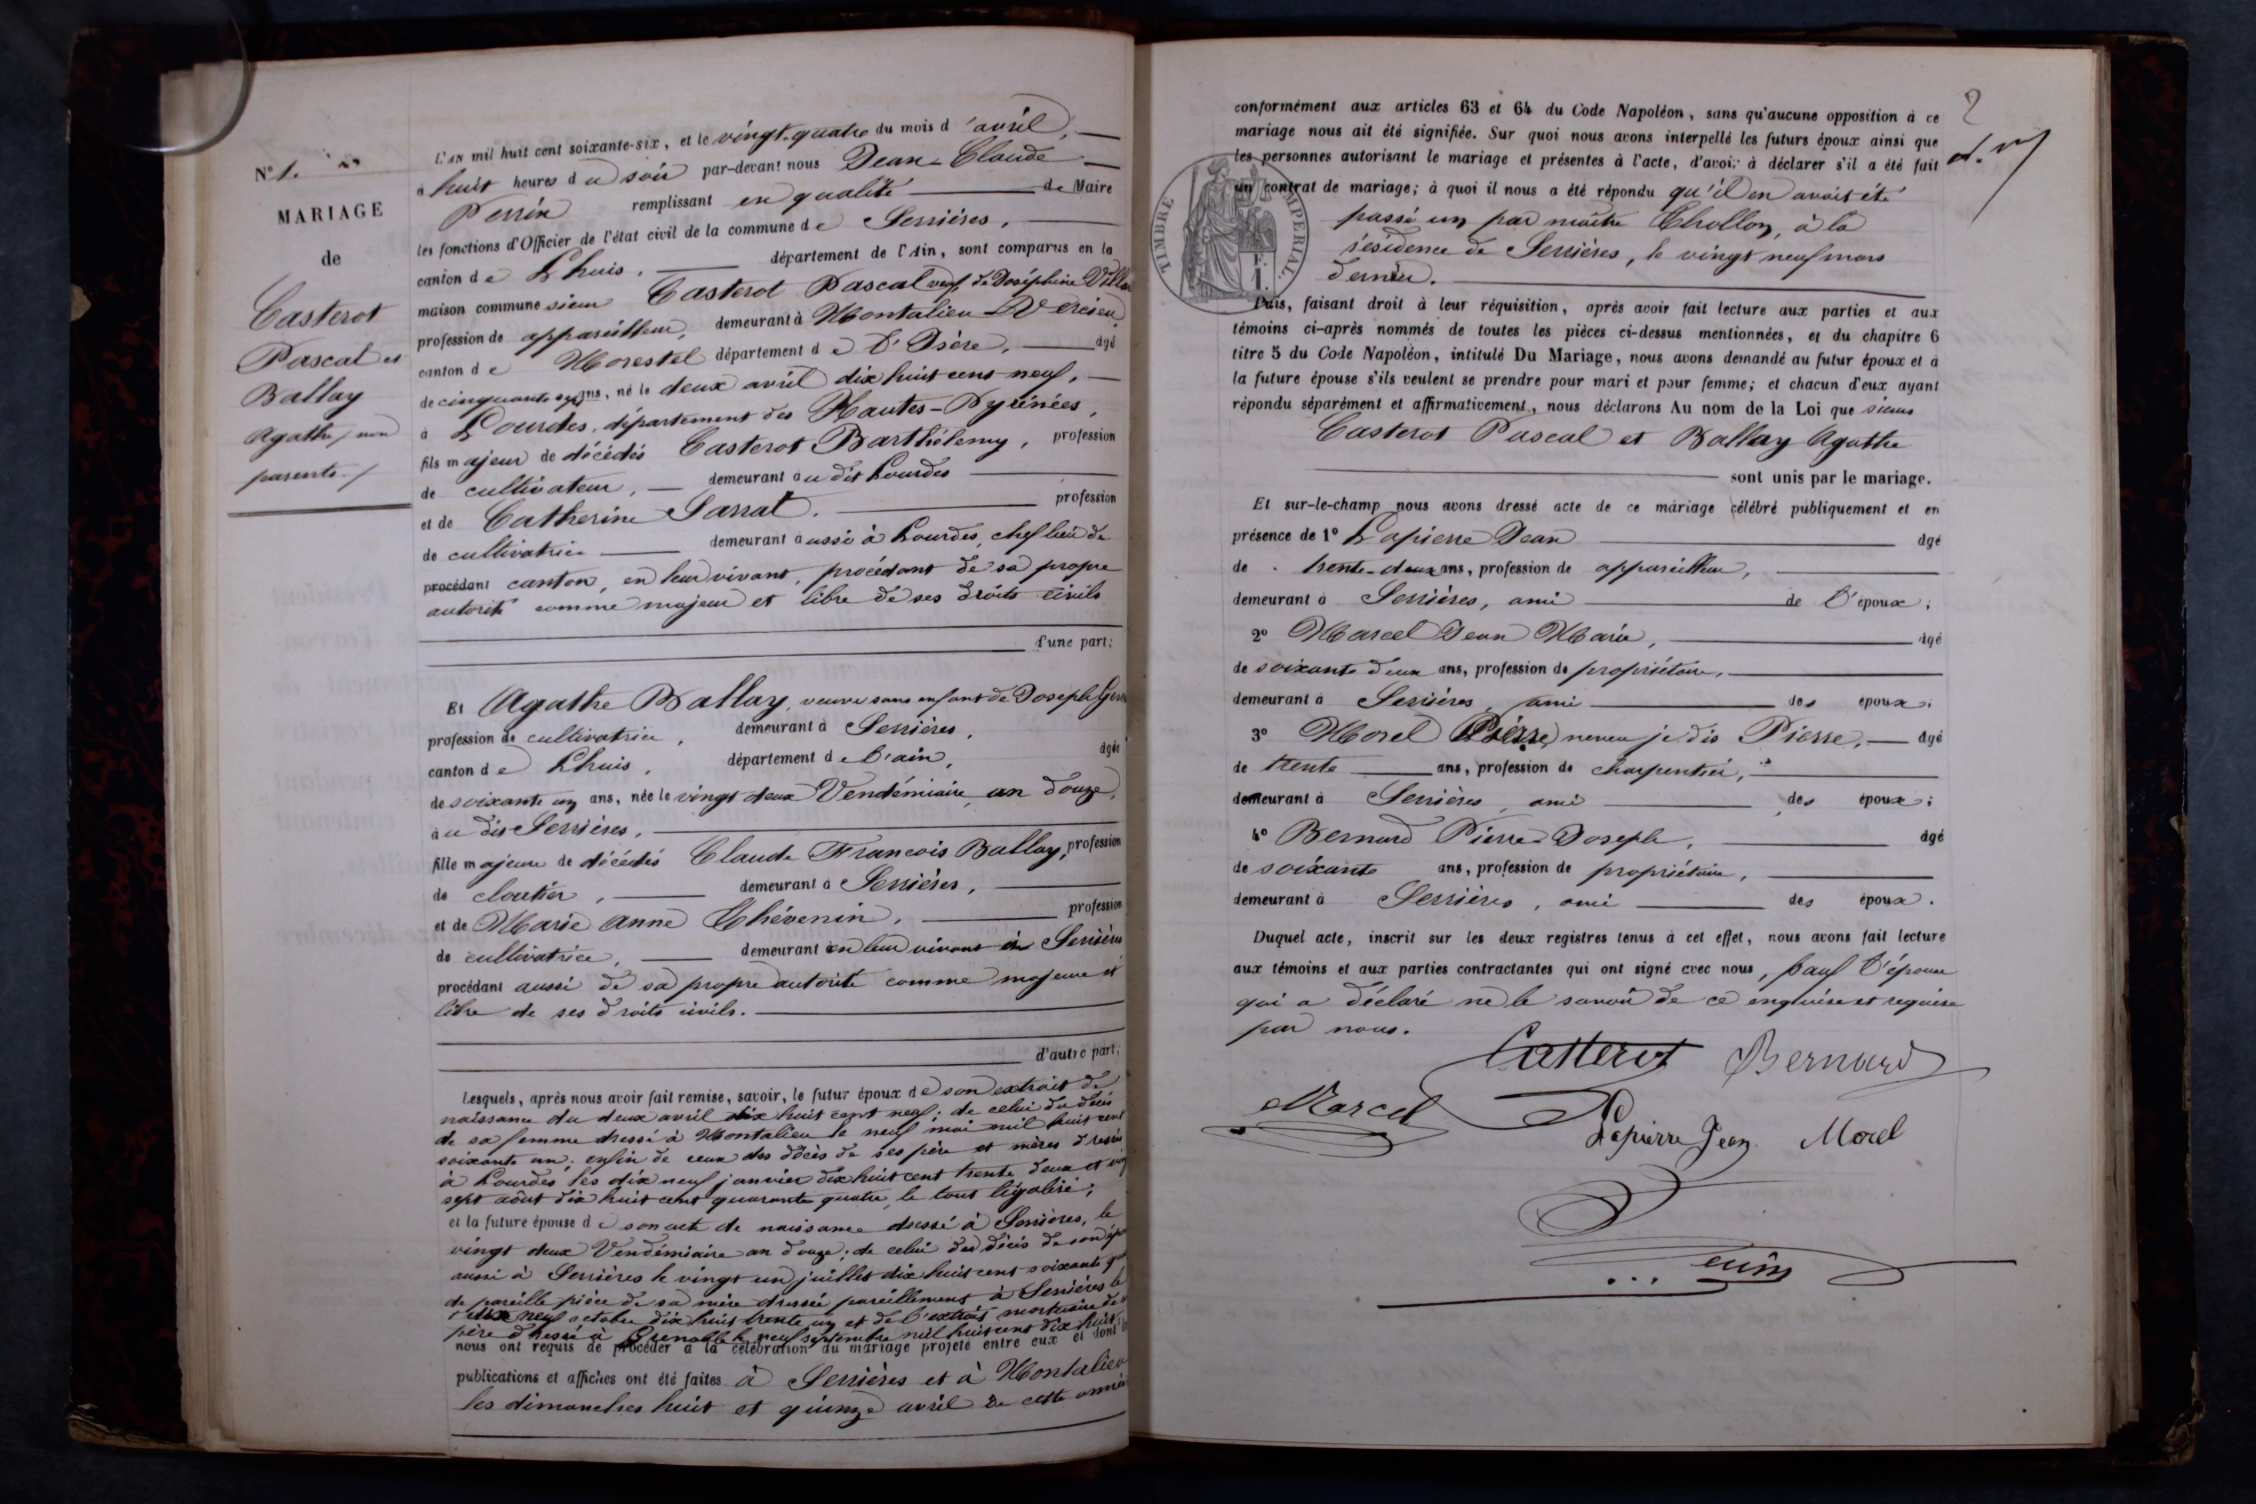 N° 1.
MARIAGE
de
Casterot
Pascal et
Ballay
Agathe, non
parents./
L'AN mil huit cent soixante-six, et le vingt-quatre du mois d'avril,
à huit heures du soir par-devant nous Jean-Claude
Perrin remplissant en qualité de Maire
les fonctions d'Officier de l'état civil de la commune de Serrières,
canton de Lhuis, département de l'Ain, sont comparus en la
maison commune sieur Casterot Pascal veuf de Joséphine
profession de appareilleur, demeurant à Montalieu Vercieu,
canton de Morestel département de l'Isère, âgé
de cinquante sept ans, né le deux avril dix huit cent neuf,
à Lourdes, département des Hautes-Pyrénées,
fils majeur de décédés Casterot Barthélemy, profession
de cultivateur, demeurant au dit Lourdes
et de Catherine Sarrat, profession
de cultivatrice demeurant aussi à Lourdes, chef lieu de
procédant canton, en leur vivant, procédant de sa propre
autorité comme majeur et libre de ses droits civils
d'une part;
Et Agathe Ballay, veuve sans enfant de Joseph
profession de cultivatrice, demeurant à Serrières,
canton de Lhuis, département de l'ain, âgée
de soixante un ans, née le vingt deux Vendémiaire an douze,
au dit Serrières,
fille majeure de décédés Claude François Ballay, profession
de cloutier, demeurant à Serrières,
et de Marie Anne Thévenin, profession
de cultivatrice, demeurant en leur vivant à Serrières
procédant aussi de sa propre autorité comme majeure et
libre de ses droits civils.
d'autre part;
Lesquels, après nous avoir fait remise, savoir, le futur époux de son extrait de
naissance du deux avril dix huit cent neuf; de celui du décès
de sa femme dressé à Montalieu le neuf mai mil huit cent
soixante un; enfin de ceux des décès de ses père et mères dressés
à Lourdes les dix neuf janvier dix huit cent trente deux et
sept août dix huit cent quarante quatre, le tout légalisé;
et la future épouse de son acte de naissance dressé à Serrières, le
vingt deux Vendémiaire an douze; de celui du décès de son
aussi à Serrières le vingt un juillet dix huit cent soixante
de pareille pièce de sa mère dressée pareillement à Serrières le
dix neuf octobre dix huit trente un et de l'extrait mortuaire de
père dressé à Grenoble le neuf septembre mil huit cent dix huit
nous ont requis de procéder à la célébration du mariage projeté entre eux et dont
publications et affiches ont été faites à Serrières et à Montalieu
les dimanches huit et quinze avril de cette année
2
conformément aux articles 63 et 64 du Code Napoléon, sans qu'aucune opposition à ce
mariage nous ait été signifiée. Sur quoi nous avons interpellé les futurs époux ainsi que
les personnes autorisant le mariage et présentes à l'acte, d'avoir à déclarer s'il a été fait
un contrat de mariage; à quoi il nous a été répondu qu'il en avait été
passé un par maître Chollon, à la
résidence de Serrières, le vingt neuf mars
dernier.
TIMBRE IMPÉRIAL
Puis, faisant droit à leur réquisition, après avoir fait lecture aux parties et aux
témoins ci-après nommés de toutes les pièces ci-dessus mentionnées, et du chapitre 6
titre 5 du Code Napoléon, intitulé Du Mariage, nous avons demandé au futur époux et à
la future épouse s'ils veulent se prendre pour mari et pour femme; et chacun d'eux ayant
répondu séparément et affirmativement, nous déclarons Au nom de la Loi que sieur
Casterot Pascal et Ballay Agathe
sont unis par le mariage.
Et sur-le-champ nous avons dressé acte de ce mariage célébré publiquement et en
présence de 1° Lapierre Jean âgé
de trente-deux ans, profession de appareilleur,
demeurant à Serrières, ami de l'époux;
2° Marcel Jean Marie, âgé
de soixante deux ans, profession de propriétaire,
demeurant à Serrières, ami des époux;
3° Morel Pierre neveu je dis Pierre, âgé
de trente ans, profession de charpentier,
demeurant à Serrières, ami des époux;
4° Bernard Pierre Joseph, âgé
de soixante ans, profession de propriétaire,
demeurant à Serrières, ami des époux.
Duquel acte, inscrit sur les deux registres tenus à cet effet, nous avons fait lecture
aux témoins et aux parties contractantes qui ont signé avec nous, sauf l'épouse
qui a déclaré ne le savoir de ce enquise et requise
par nous.
Casterot Bernard
Marcel
Lapierre Jean Morel
Perrin